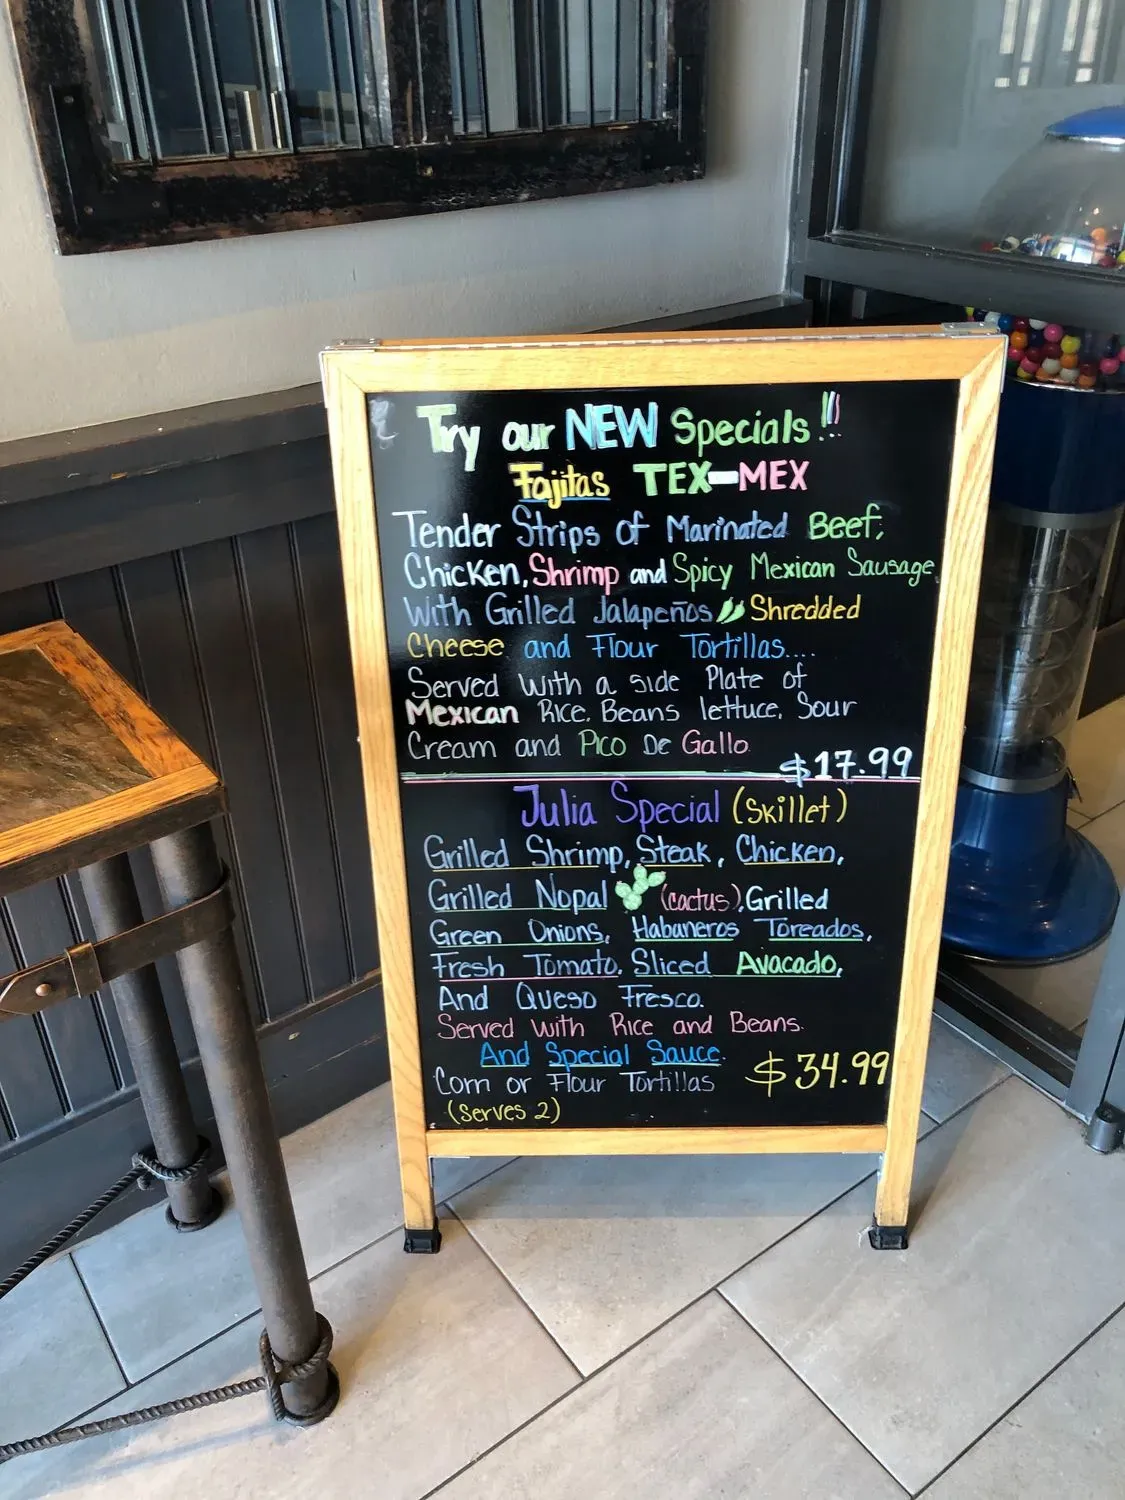 Try our NEW Specials!!!
Fajitas TEX-MEX
Tender Strips of Marinated Beef,
Chicken, Shrimp and Spicy Mexican Sausage
With Grilled Jalapeños Shredded
Cheese and Flour Tortillas....
Served With a side Plate of
Mexican Rice. Beans lettuce. Sour
Cream and Pico De Gallo
$17.99
Julia Special (Skillet)
Grilled Shrimp, Steak, Chicken,
Grilled Nopal (cactus), Grilled
Green Onions, Habaneros Toreados,
Fresh Tomato. Sliced Avacado,
And Queso Fresco.
Served With Rice and Beans.
And Special Sauce.
Corn or Flour Tortillas $34.99
(Serves 2)